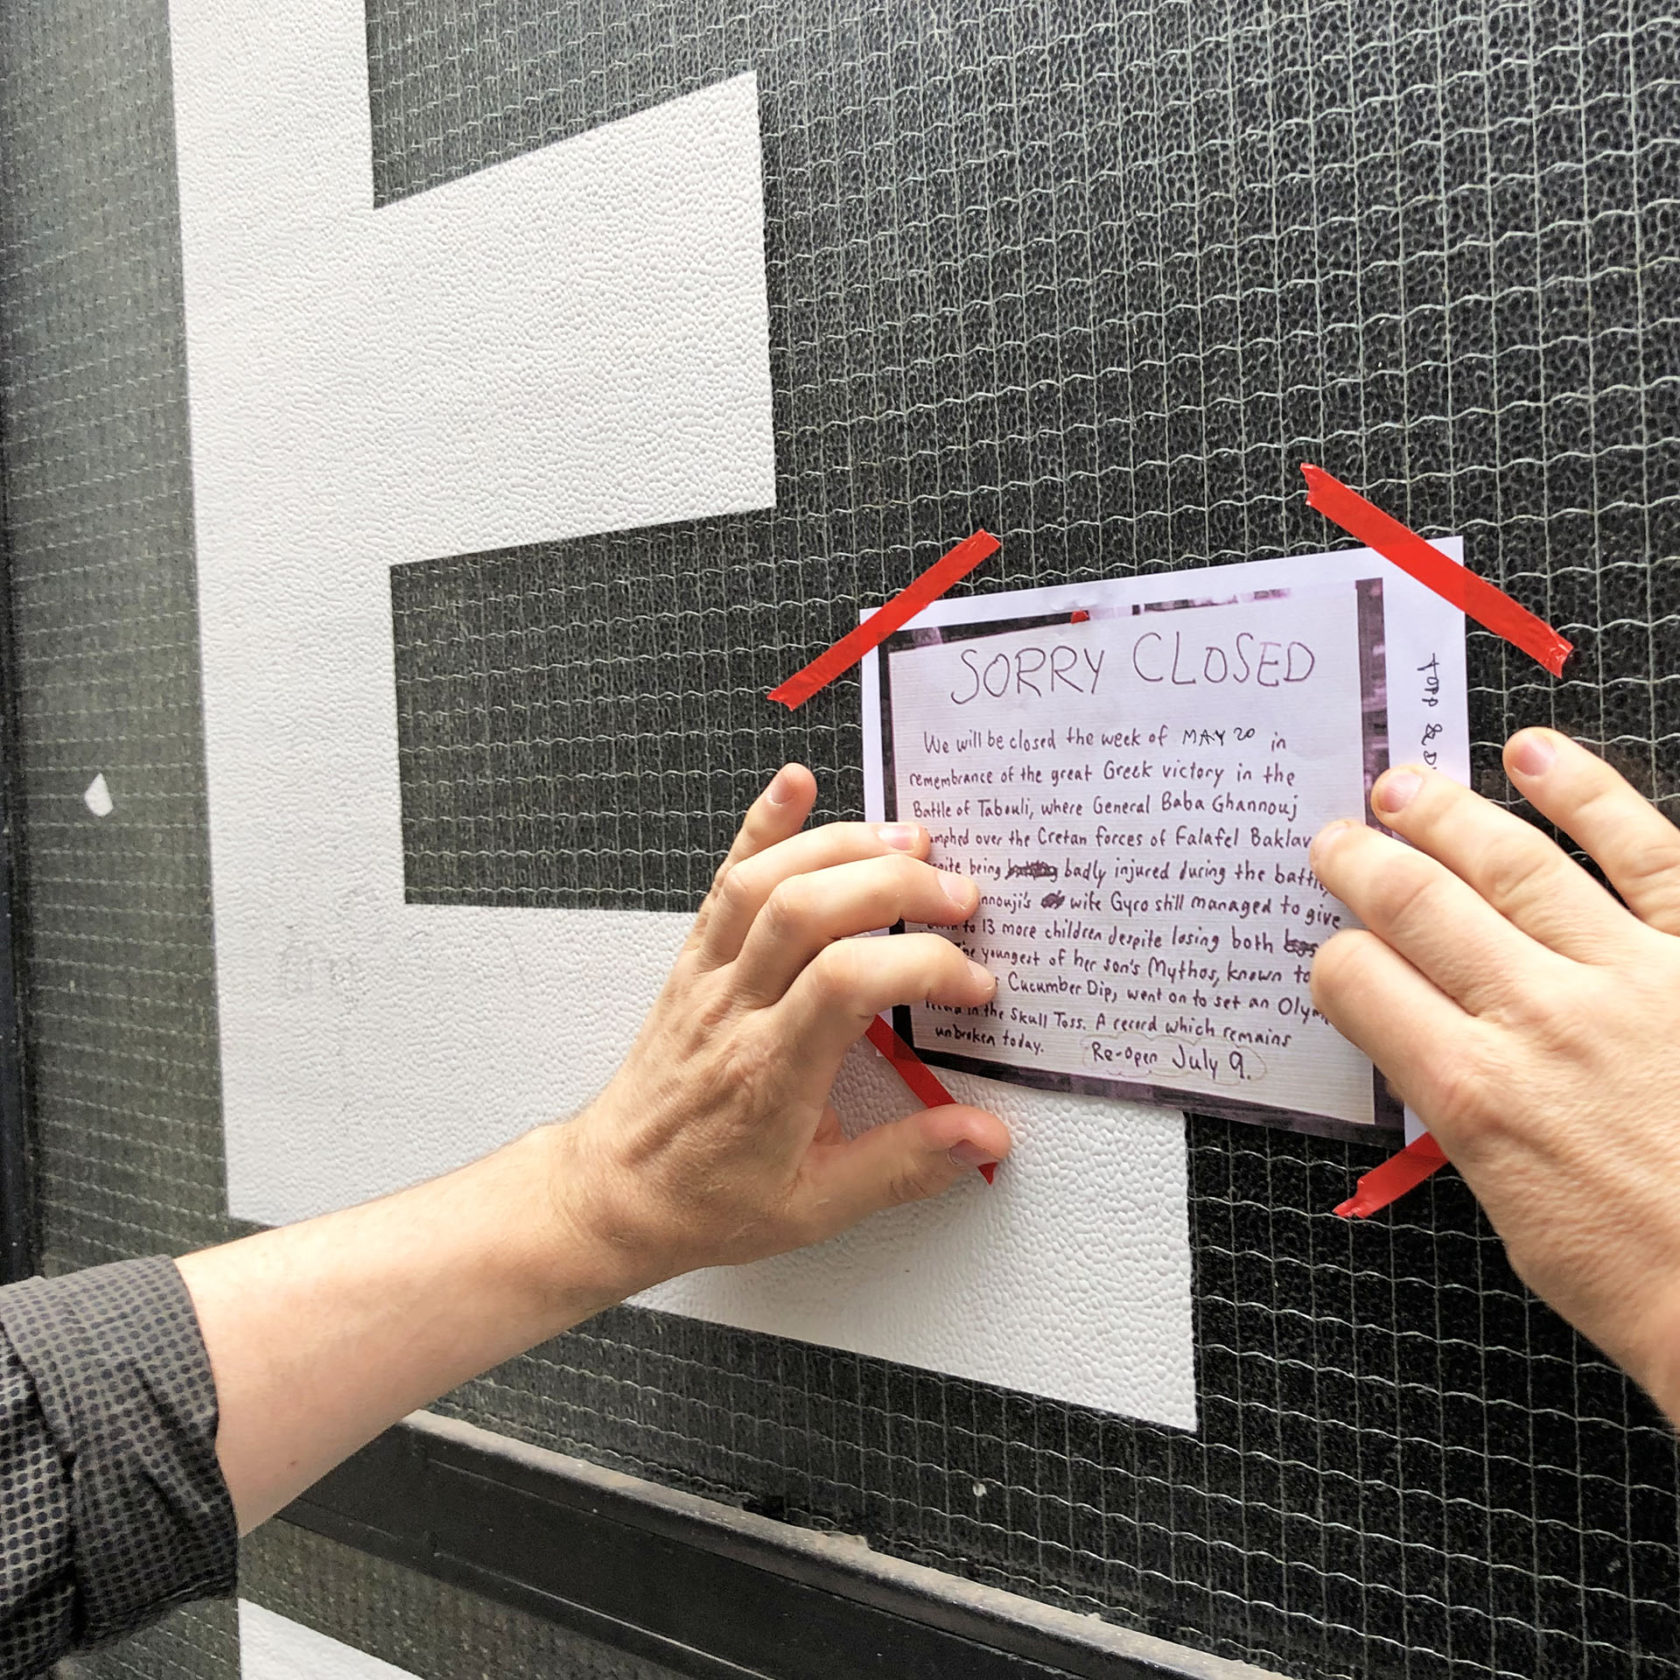 SORRY CLOSED
We will be closed the week of MAY 20 in
remembrance of the great Greek victory in the
Battle of Tabouli, where General Baba Ghannouj
over the Cretan forces of Falafel
being badly injured during the
wife Gyro still managed to give
to 13 more children despite losing both
youngest of her son's Mythos, known to
Cucumber Dip, went on to set an
in the Skull Toss. A record which remains
unbroken today. Re-open July 9.
TOPP &